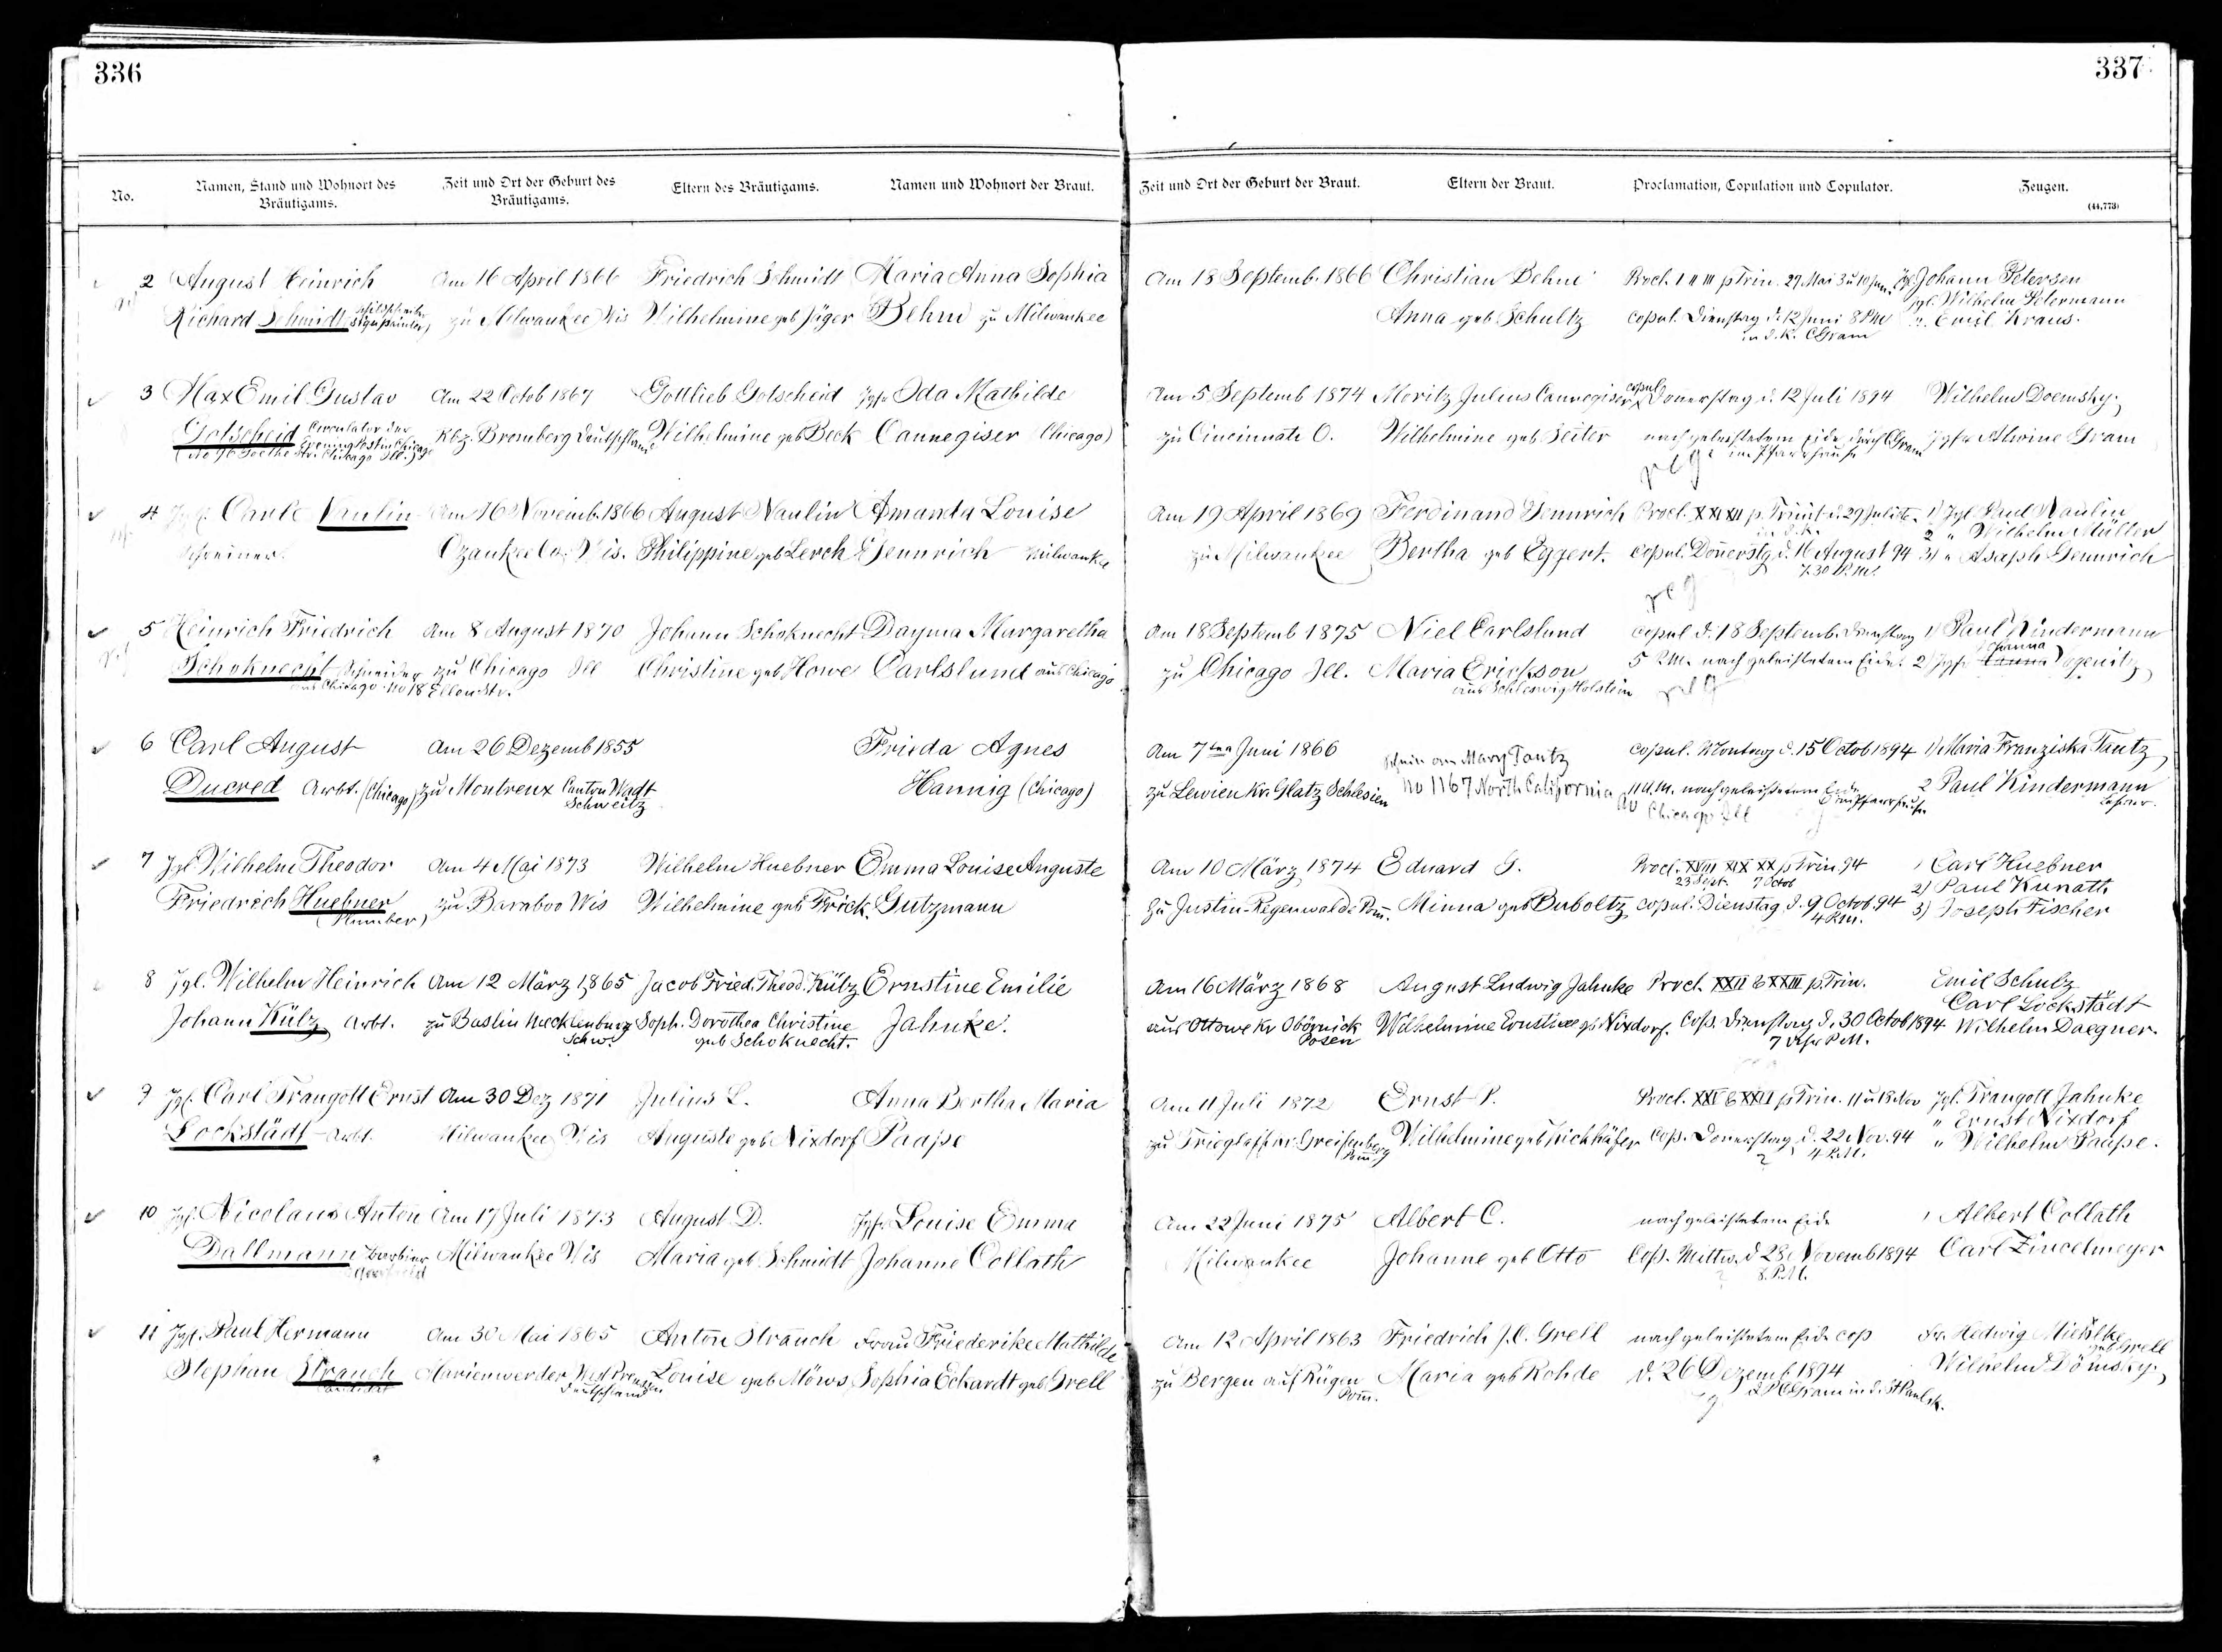 336
No.
Namen, Stand und Wohnort des
Bräutigams.
Zeit und Ort der Geburt des
Bräutigams.
Eltern des Bräutigams.
Namen und Wohnort der Braut.
337
Zeit und Ort der Geburt der Braut.
Eltern der Braut.
Proclamation, Copulation und Copulator.
Zeugen.
(44,773)
2 August Heinrich am 16 April 1866 Friedrich Schmidt Maria Anna Sophia
Richard Schmidt zu Milwaukee Wis Wilhelmine geb Jäger Behm zu Milwaukee
am 18 Septemb. 1866 Christian Behm Procl. I II III p Trin. 27 Mai 3 u 10 Jun. Jgl. Johann Petersen
Jgl. Wilhelm Petermann
Anna geb Schultz copul. Dienstag d. 12 Juni 8 PM u. Emil Kraus.
in d. K. CGram
3 Max Emil Gustav am 22 Octob 1867 Gottlieb Gotscheid Jgfr Ida Mathilde
Gotscheid Circulator der Evening Post in Chicago Kbz. Bromberg Deutschland Wilhelmine geb Beck Cannegiser (Chicago)
(No 96 Goethe Str. Chicago Ill.)
Am 5 Septemb 1874 Moritz Julius Cannegiser copul Donerstag d. 12 Juli 1894 Wilhelm Doemsky
zu Cincinnati O. Wilhelmine geb Seiter nach geleistetem Eide durch CGram Jgfr Alwine Gram
im Pfarrhause
4 Carl Naulin am 16 Novemb. 1866 August Naulin Amanda Louise
Schreiner. Ozaukee Co. Wis. Philippine geb Lerch Gennrich Milwaukee
am 19 April 1869 Ferdinand Gennrich Procl. XI XII p. Trinit. d. 29 Juli 1) Jgl Paul Naulin
2 " Wilhelm Müller
zu Milwaukee Bertha geb Eggert. copul. Donerstg. d. 16 August 94 3) " Asaph Gennrich
7.30 P.M.
5 Heinrich Friedrich am 8 August 1870 Johann Schoknecht Dagma Margaretha
Schoknecht Schneider zu Chicago Ill Christine geb Howe Carlslund aus Chicago
aus Chicago No 18 Ellen Str.
am 18 Septemb 1875 Niel Carlslund copul d. 18 Septemb. Dienstag 1) Paul Kindermann
zu Chicago Ill. Maria Erickson 5 PM. nach geleistetem Eide. 2) Jgfr
aus Schleswig Holstein
6 Carl August am 26 Dezemb 1855 Frieda Agnes
Ducred Arbt. (Chicago) zu Montreux Canton Wadt Hannig (Chicago)
Schweitz
Am 7ten Juni 1866 Schein an Mary Tautz copul. Montag d. 15 Octob 1894 1) Maria Franziska Tautz
zu Lewien Kr. Glatz Schlesien No 1167 North California nach geleistetem Eide 2 Paul Kindermann
Av Chicago Ill im Pfarrhause Lehrer.
7 Jgl Wilhelm Theodor am 4 Mai 1873 Wilhelm Huebner Emma Louise Auguste
Friedrich Huebner zu Baraboo Wis Wilhelmine geb Frick. Gutzmann
(Plumber)
am 10 März 1874 Eduard G. Procl. XVIII XIX XX p Trin. 94 1 Carl Huebner
23 Sept. 7 Octob 2) Paul Kunath
zu Justin Regenwalde Pom. Minna geb Buboltz copul. Dienstag d. 9 Octob. 94 3) Joseph Fischer
4 P.M.
8 Jgl. Wilhelm Heinrich am 12 März 1865 Jacob Fried. Theod. Külz Ernstine Emilie
Johann Külz Arbt. zu Baslin Mecklenburg Soph. Dorothea Christine Jahnke.
Schw. geb Schoknecht.
am 16 März 1868 August Ludwig Jahnke Procl. XXII & XXIII p. Trin. Emil Schulz
Carl Lockstädt
aus Ottowe Kr Obornick Wilhelmine Ernstine geb Nixdorf. Cop. Dienstag d. 30 Octob 1894 Wilhelm Daegner.
Posen 7 Uhr P.M.
9 Jgl. Carl Traugott Ernst am 30 Dez 1871 Julius L. Anna Bertha Maria
Lockstädt Arbt. Milwaukee Wis Auguste geb Nixdorf Paape
am 11 Juli 1872 Ernst P. Procl. p Trin. 11 u 18 Nov Jgl. Traugott Jahnke
" Ernst Nixdorf
zu Trieglaff Kr. Greifenberg Wilhelmine geb Cop. Donerstag d. 22 Nov. 94 " Wilhelm Paape.
Pom. 4 P.M.
10 Jgl. Nicolaus Anton am 17 Juli 1873 August D. Jgfr Louise Emma
Dallmann Barbier Milwaukee Wis Maria geb. Schmidt Johanne Collath
am 22 Juni 1875 Albert C. nach geleistetem Eide 1 Albert Collath
Milwaukee Johanne geb Otto Cop. Mittw. d 28 Novemb 1894 Carl Zincelmeyer
8. P.M.
11 Jgl. Paul Hermann am 30 Mai 1865 Anton Strauch Frau Friederike Mathilde
Stephan Strauch Marienwerder West Preussen Louise geb Möws Sophia Eckardt geb Grell
Deutschland
am 12 April 1863 Friedrich J. C. Grell nach geleistetem Eide cop Fr. Hedwig Miehlke
geb Grell
zu Bergen auf Rügen Maria geb Rohde d. 26 Dezemb 1894 Wilhelm Dömsky
Pom. CGram in d. St Paulsk.